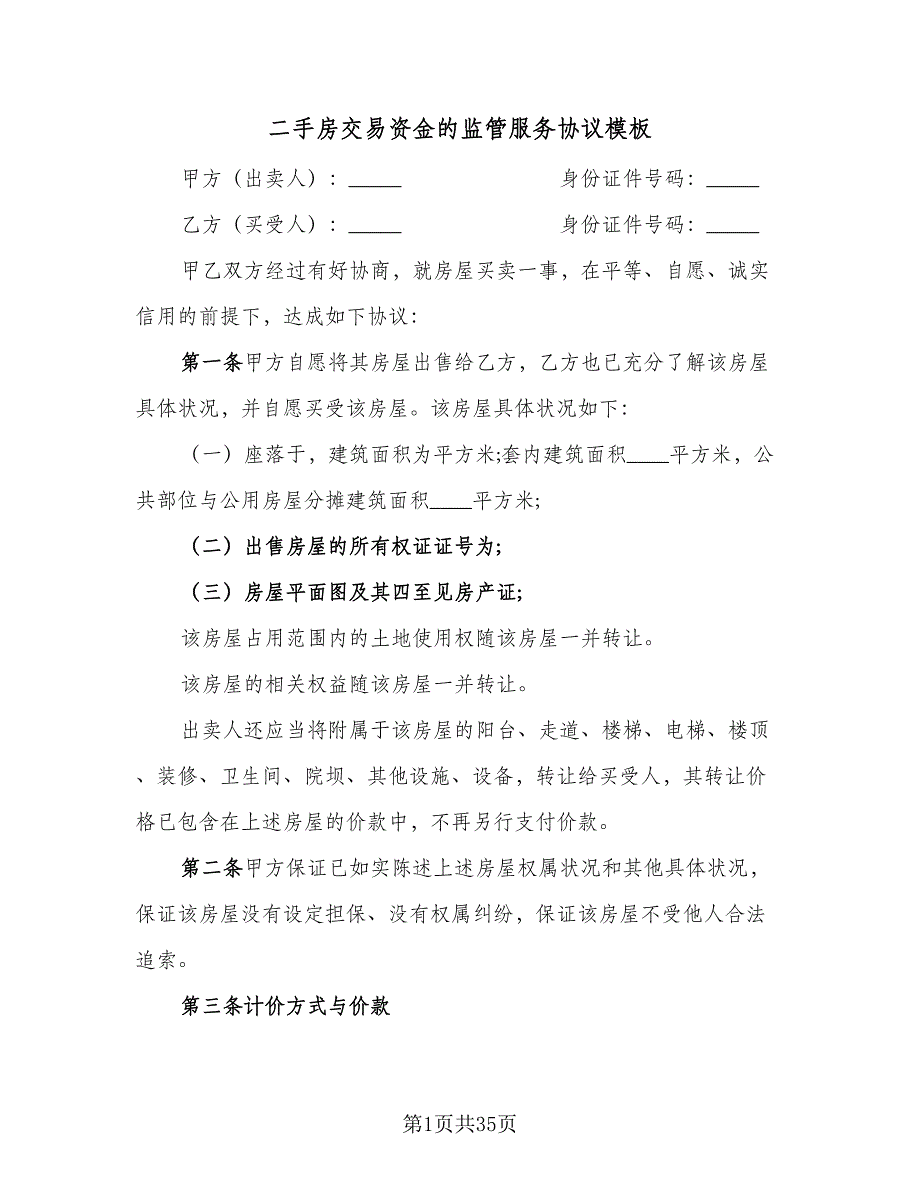 二手房交易资金的监管服务协议模板
甲方（出卖人）：_____ 身份证件号码：_____
乙方（买受人）：_____ 身份证件号码：_____
甲乙双方经过有好协商，就房屋买卖一事，在平等、自愿、诚实
信用的前提下，达成如下协议：
第一条甲方自愿将其房屋出售给乙方，乙方也已充分了解该房屋
具体状况，并自愿买受该房屋。该房屋具体状况如下：
（一）座落于，建筑面积为平方米;套内建筑面积____平方米，公
共部位与公用房屋分摊建筑面积____平方米;
（二）出售房屋的所有权证证号为;
（三）房屋平面图及其四至见房产证;
该房屋占用范围内的土地使用权随该房屋一并转让。
该房屋的相关权益随该房屋一并转让。
出卖人还应当将附属于该房屋的阳台、走道、楼梯、电梯、楼顶
、装修、卫生间、院坝、其他设施、设备，转让给买受人，其转让价
格已包含在上述房屋的价款中，不再另行支付价款。
第二条甲方保证已如实陈述上述房屋权属状况和其他具体状况，
保证该房屋没有设定担保、没有权属纠纷，保证该房屋不受他人合法
追索。
第三条计价方式与价款
第1页共35页